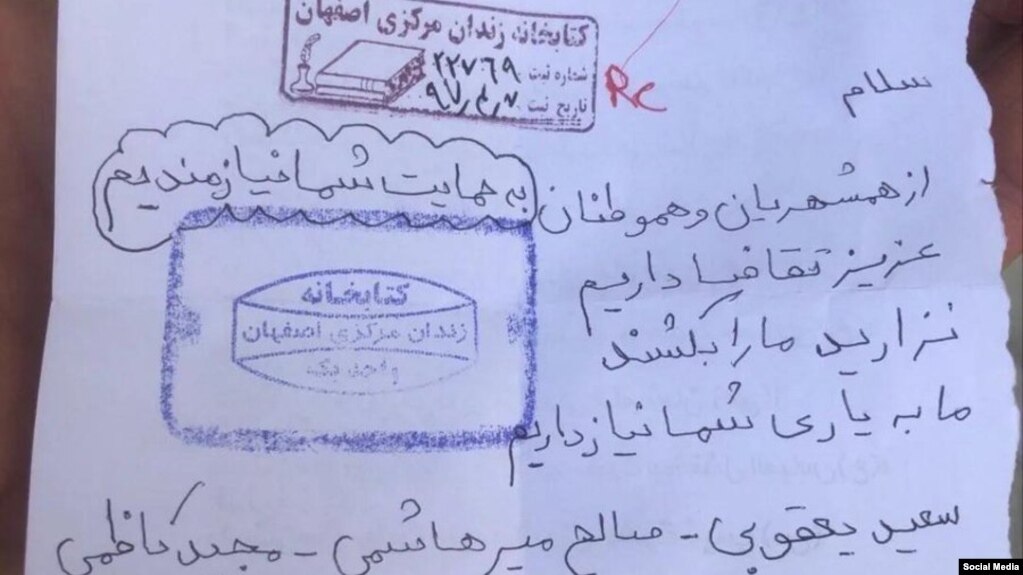 کتابخانه زندان مرکزی اصفهان
شماره ثبت ۲۲۷۶۹
تاریخ ثبت ۹۷/۴/۷
Rc
سلام
از همشهریان و هموطنان
به حمایت شما نیازمندیم
عزیز تقاضا داریم
نزارید ما را بکشند
ما به یاری شما نیاز داریم
کتابخانه
زندان مرکزی اصفهان
واحد یک
سعید یعقوبی - صالح میرهاشمی - مجید کاظمی
Social Media